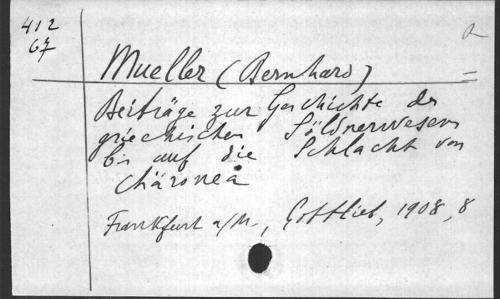 412
67
a
Mueller (Bernhard) =
Beiträge zur Geschichte des
griechischen Söldnerwesens
bis auf die Schlacht von
Chäronea
Frankfurt a/M., Gottlieb, 1908, 8